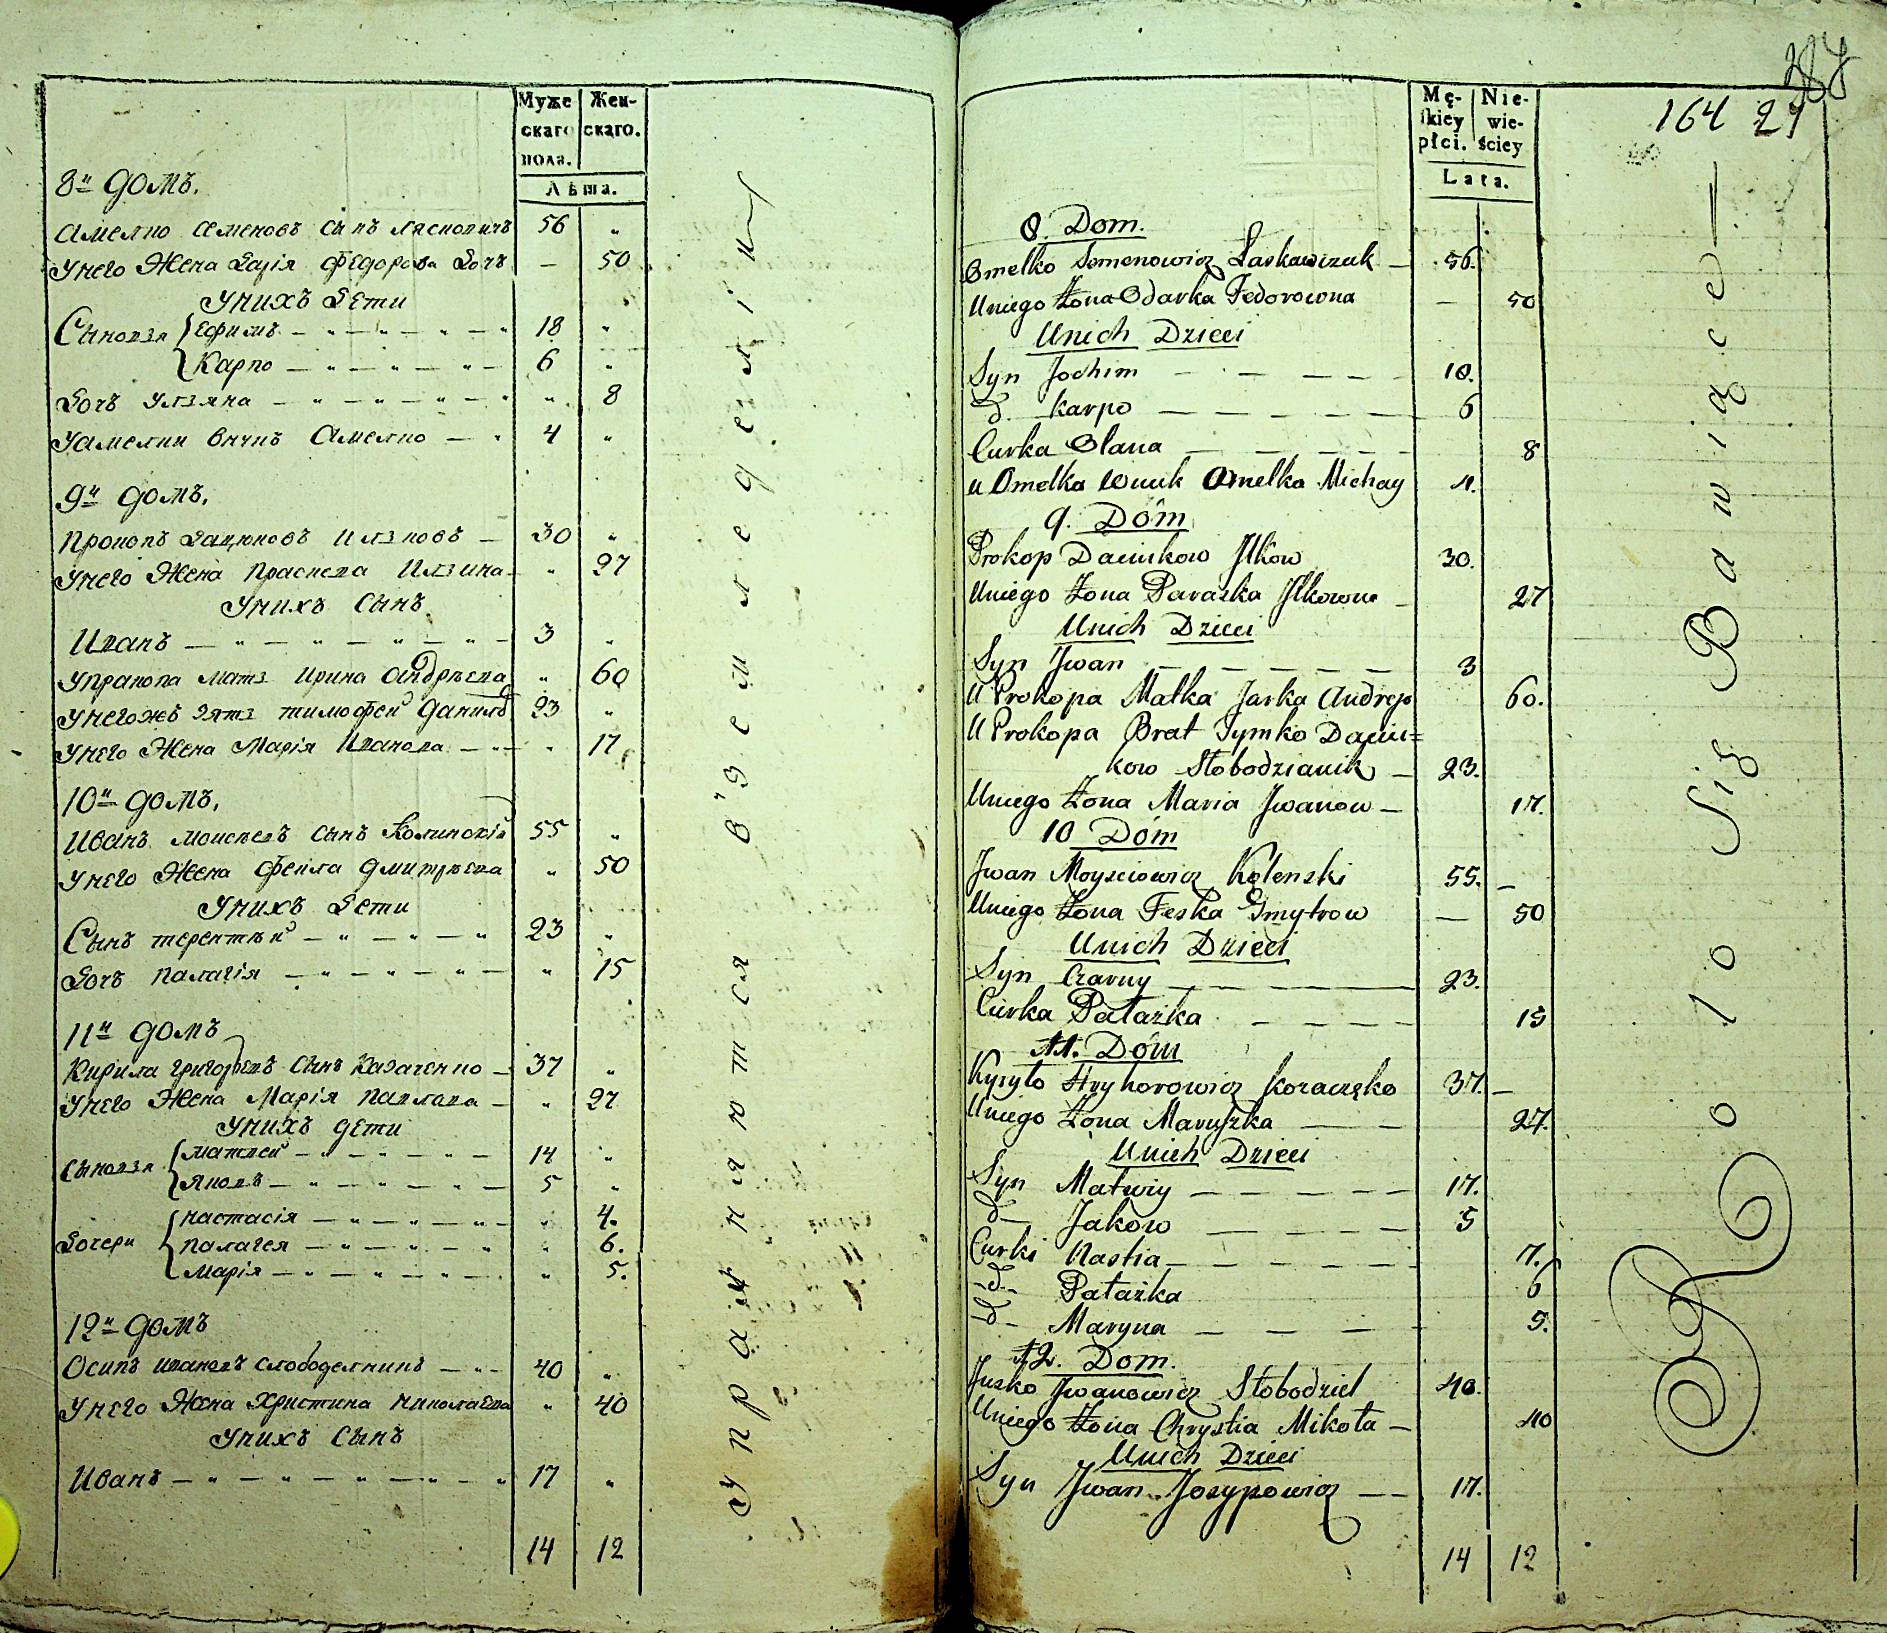 Муже
скаго
пола.
Жен-
скаго.
Лѣта.
8й домъ.
Амелко Семеновъ сынъ 56 "
Унего Жена Дарія Федорова дочь — 50
Унихъ Дети
Сыновья Ефимъ 18 "
Карпо 6 "
Дочь Ульяна " 8
Уамелки внукъ Амелко 4 "
9й домъ.
Прокопъ Дацюковъ Ильковъ 30 "
Унего Жена Прасковья Илькина " 27
Унихъ Сынъ
Иванъ 3 "
Упракопа мать Ирина Андрѣева " 60
Унегожъ зять Тимофей Данилов 23 "
Унего Жена Марія Иванова " 17
10й домъ.
Иванъ Моисѣевъ сынъ Колинскій 55 "
Унего Жена Фекла Дмитрѣева " 50
Унихъ Дети
Сынъ Терентѣй 23 "
Дочь Палагія " 15
11й домъ
Кирила Григорьевъ Сынъ Казаченко 37 "
Унего Жена Марія Павлова " 27
Унихъ дети
Сыновья Матвей 14 "
Яковъ 5 "
Дочери Настасія " 4.
Палагея " 6.
Марія " 5.
12й домъ
Осипъ Ивановъ Слободеникъ 40 "
Унего Жена Христина Николаева " 40
Унихъ Сынъ
Иванъ 17 "
14 12
Упражняются в земледеліи
387
164 27
Mę-
ſkiey
płci.
Nie-
wie-
ściey
Lata.
8. Dom.
Omelko Semenowicz Laskawczuk 56.
Uniego Żona Odarka Fedorowna — 50
Unich Dzieci
Syn Jochim 18.
d. Karpo 6
Curka Olana 8
u Omelka Wnuk Omelko Michay 4.
9. Dóm
Prokop Daciukow Jlkow 30.
Uniego Żona Paraska Jlkowna 27
Unich Dzieci
Syn Jwan 3
U Prokopa Matka Jarka Andrejo 60.
U Prokopa Brat Tymko Daciu=
kow Słobodzianik 23.
Uniego Żona Maria Jwanow 17.
10 Dóm
Jwan Moysciowicz Kolenski 55.
Uniego Żona Feska Dmytrow — 50
Unich Dzieci
Syn Czarny 23.
Curka Pałażka 15
11. Dóm
Kyryło Hryhorowicz Kozaczęko 37.
Uniego Żona Maruszka 27.
Unich Dzieci
Syn Matwiy 17.
d— Jakow 5
Curki Nastia 7.
-d- Pałażka 6
-d- Maryna 5.
12. Dom.
Jusko Jwanowicz Słobodziel 40.
Uniego Żona Chrystia Mikoła 40
Unich Dzieci
Syn Jwan Josypowicz 17.
14 12
Rolo Się Bawiące